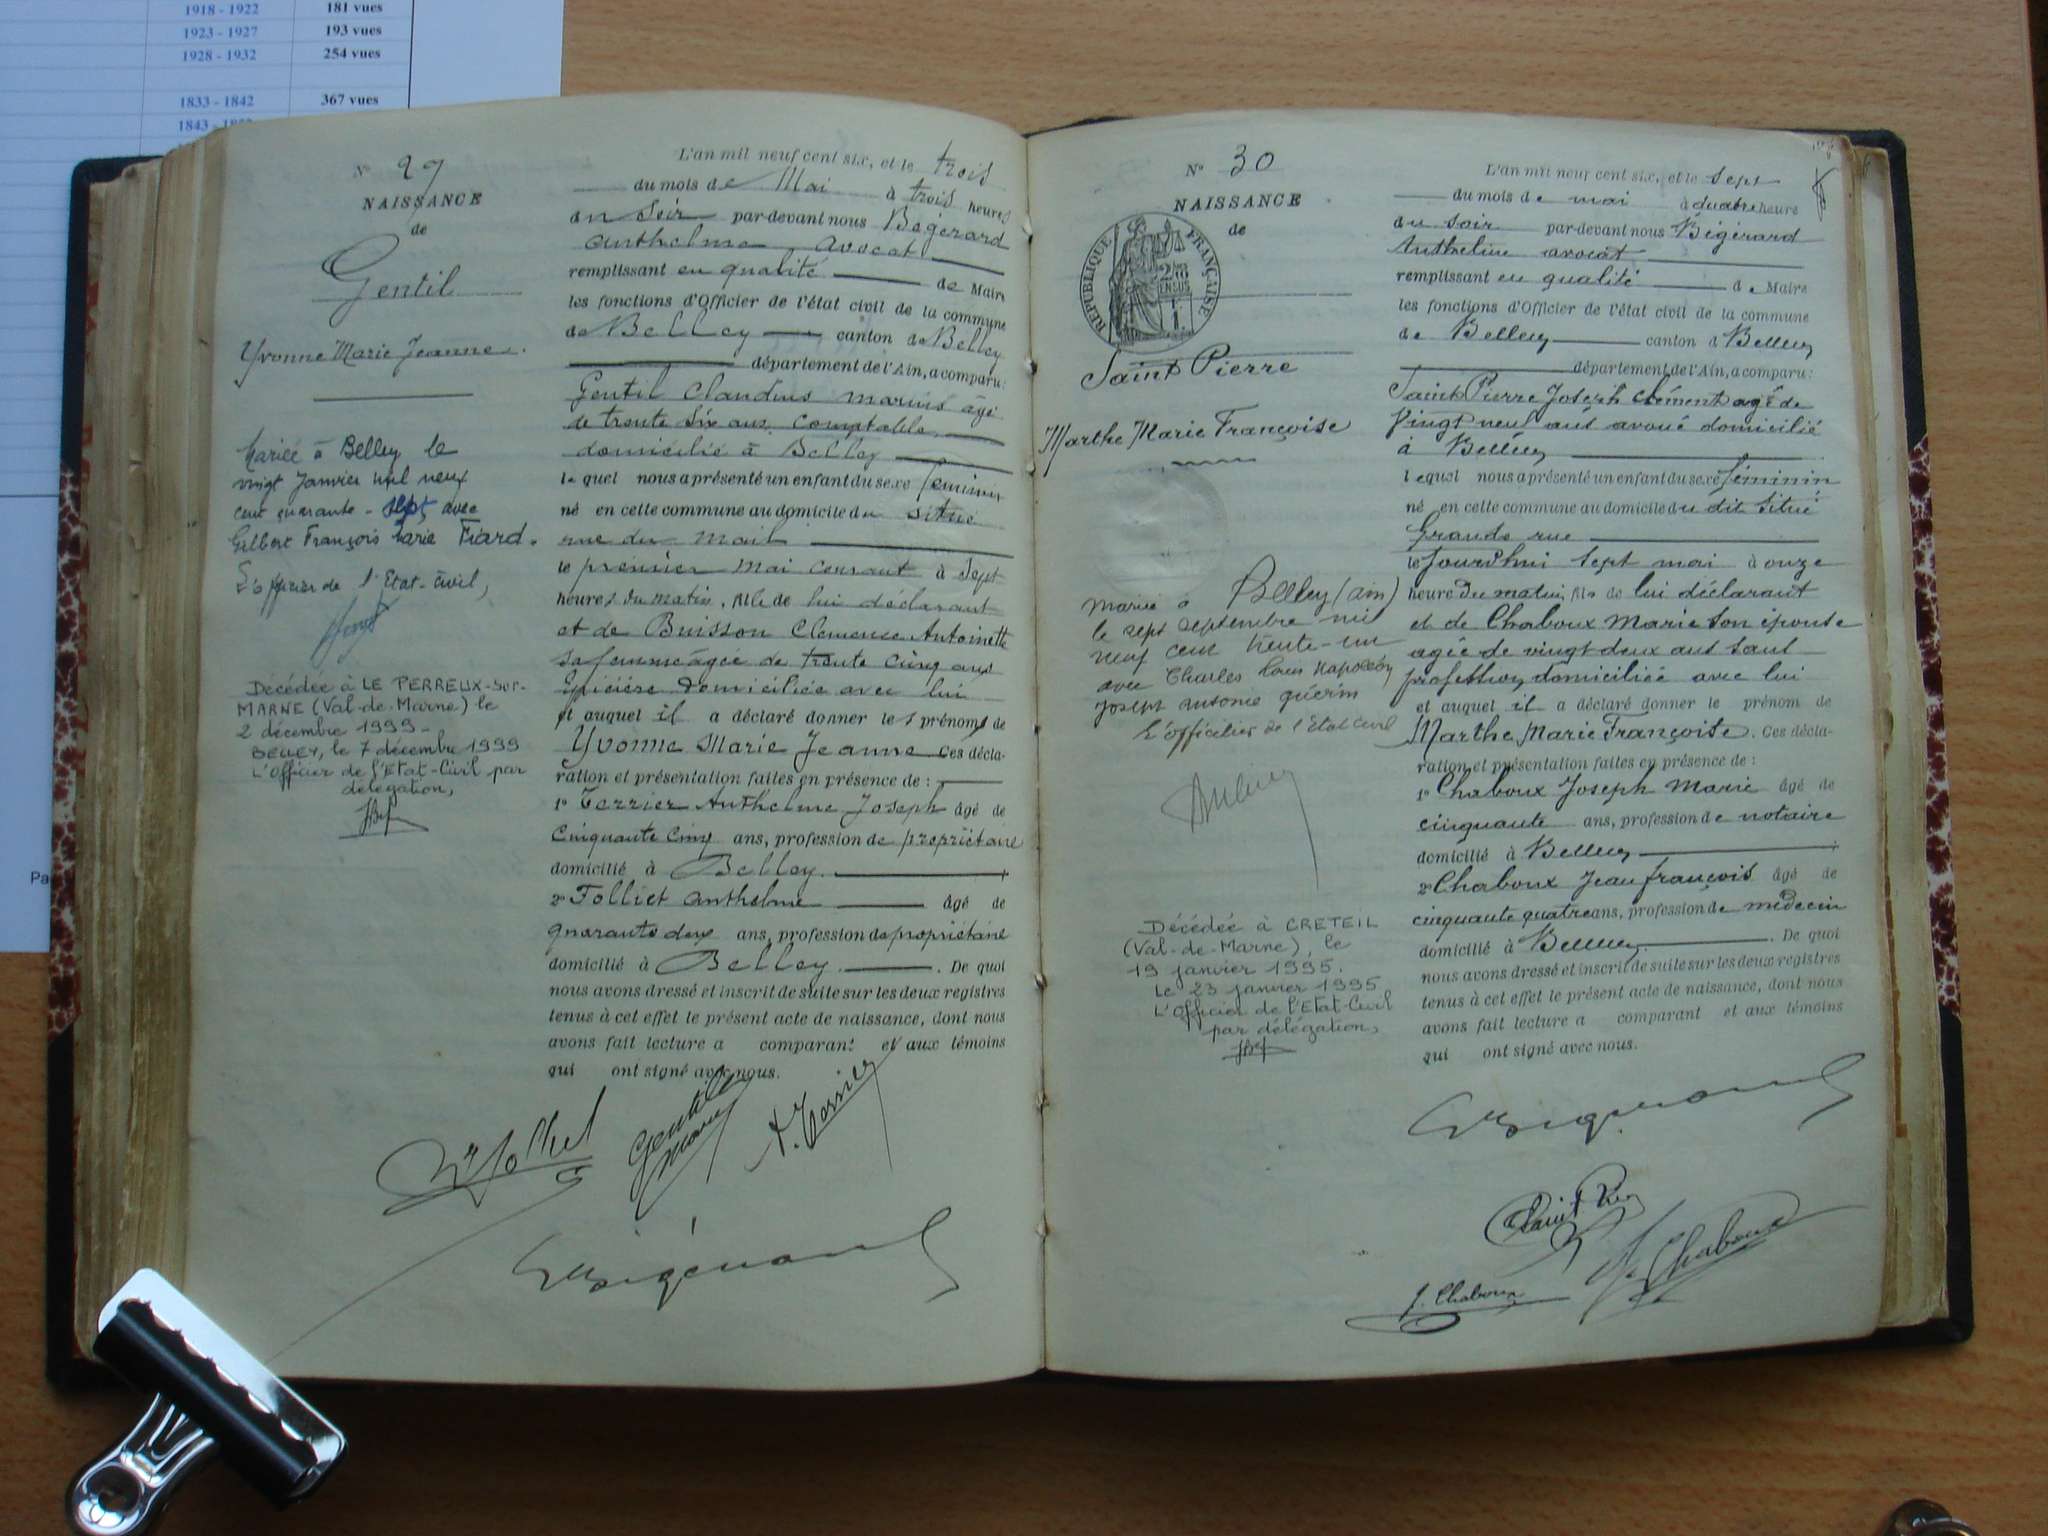 1918 - 1922 181 vues
1923 - 1927 193 vues
1928 - 1932 254 vues
1833 - 1842 367 vues
1843 -
Pa
N° 29
NAISSANCE
de
Gentil
Yvonne Marie Jeanne.
Mariée à Belley le
vingt Janvier mil neuf
cent quarante - sept avec
Gilbert François Marie Fiard.
L'officier de l'Etat-Civil,
Décédée à LE PERREUX-Sur-
MARNE (Val-de-Marne) le
2 décembre 1999-
BELLEY, le 7 décembre 1999
L'Officier de l'Etat-Civil par
délégation,
L'an mil neuf cent six, et le trois
du mois de Mai à trois heures
du Soir par-devant nous Bégérard
Anthelme Avocat
remplissant en qualité de Maire
les fonctions d'Officier de l'état civil de la commune
de Belley canton de Belley
département de l'Ain, a comparu:
Gentil Claudius Marius âgé
de trente six ans Comptable
domicilié à Belley
lequel nous a présenté un enfant du sexe féminin
né en cette commune au domicile du situé
rue du Mail
le premier Mai courant à Sept
heures du matin, fille de lui déclarant
et de Buisson Clemence Antoinette
sa femme âgée de trente cinq ans
épicière domiciliée avec lui
et auquel il a déclaré donner les prénoms de
Yvonne Marie Jeanne Ces décla-
ration et présentation faites en présence de :
1° Terrier Anthelme Joseph âgé de
Cinquante Cinq ans, profession de propriétaire
domicilié à Belley.
2° Folliet Anthelme âgé de
quarante deux ans, profession de propriétaire
domicilié à Belley. De quoi
nous avons dressé et inscrit de suite sur les deux registres
tenus à cet effet le présent acte de naissance, dont nous
avons fait lecture a comparant et aux témoins
qui ont signé avec nous.
Gentil
A. Terrier
N° 30
NAISSANCE
de
REPUBLIQUE FRANÇAISE
Saint Pierre
Marthe Marie Françoise
Mariée à Belley (Ain)
le sept septembre mil
neuf cent trente-un
avec Charles Louis Napoléon
Joseph Antonie Guérin
L'officier de l'Etat Civil
Décédée à CRETEIL
(Val-de-Marne), le
19 janvier 1995.
Le 23 janvier 1995
L'Officier de l'Etat-Civil
par délégation,
L'an mil neuf cent six, et le sept
du mois de mai à quatre heure
du soir par-devant nous Bégérard
Anthelme avocat
remplissant en qualité de Maire
les fonctions d'Officier de l'état civil de la commune
de Belley canton d Belley
département de l'Ain, a comparu:
Saint Pierre Joseph Clément agé de
Vingt neuf ans avoué domicilié
à Belley
lequel nous a présenté un enfant du sexe féminin
né en cette commune au domicile du dit Situé
Grande rue
le Jourd'hui sept mai à onze
heure du matin, fils de lui déclarant
et de Chaboux Marie son épouse
agée de vingt-deux ans sans
profession, domiciliée avec lui
et auquel il a déclaré donner le prénom de
Marthe Marie Françoise. Ces décla-
ration et présentation faites en présence de :
1° Chaboux Joseph Marie âgé de
cinquante ans, profession de notaire
domicilié à Belley
2° Chaboux Jean François âgé de
cinquante quatre ans, profession de medecin
domicilié à Belley. De quoi
nous avons dressé et inscrit de suite sur les deux registres
tenus à cet effet le présent acte de naissance, dont nous
avons fait lecture a comparant et aux témoins
qui ont signé avec nous.
Saint Pierre
Chaboux
J. Chaboux